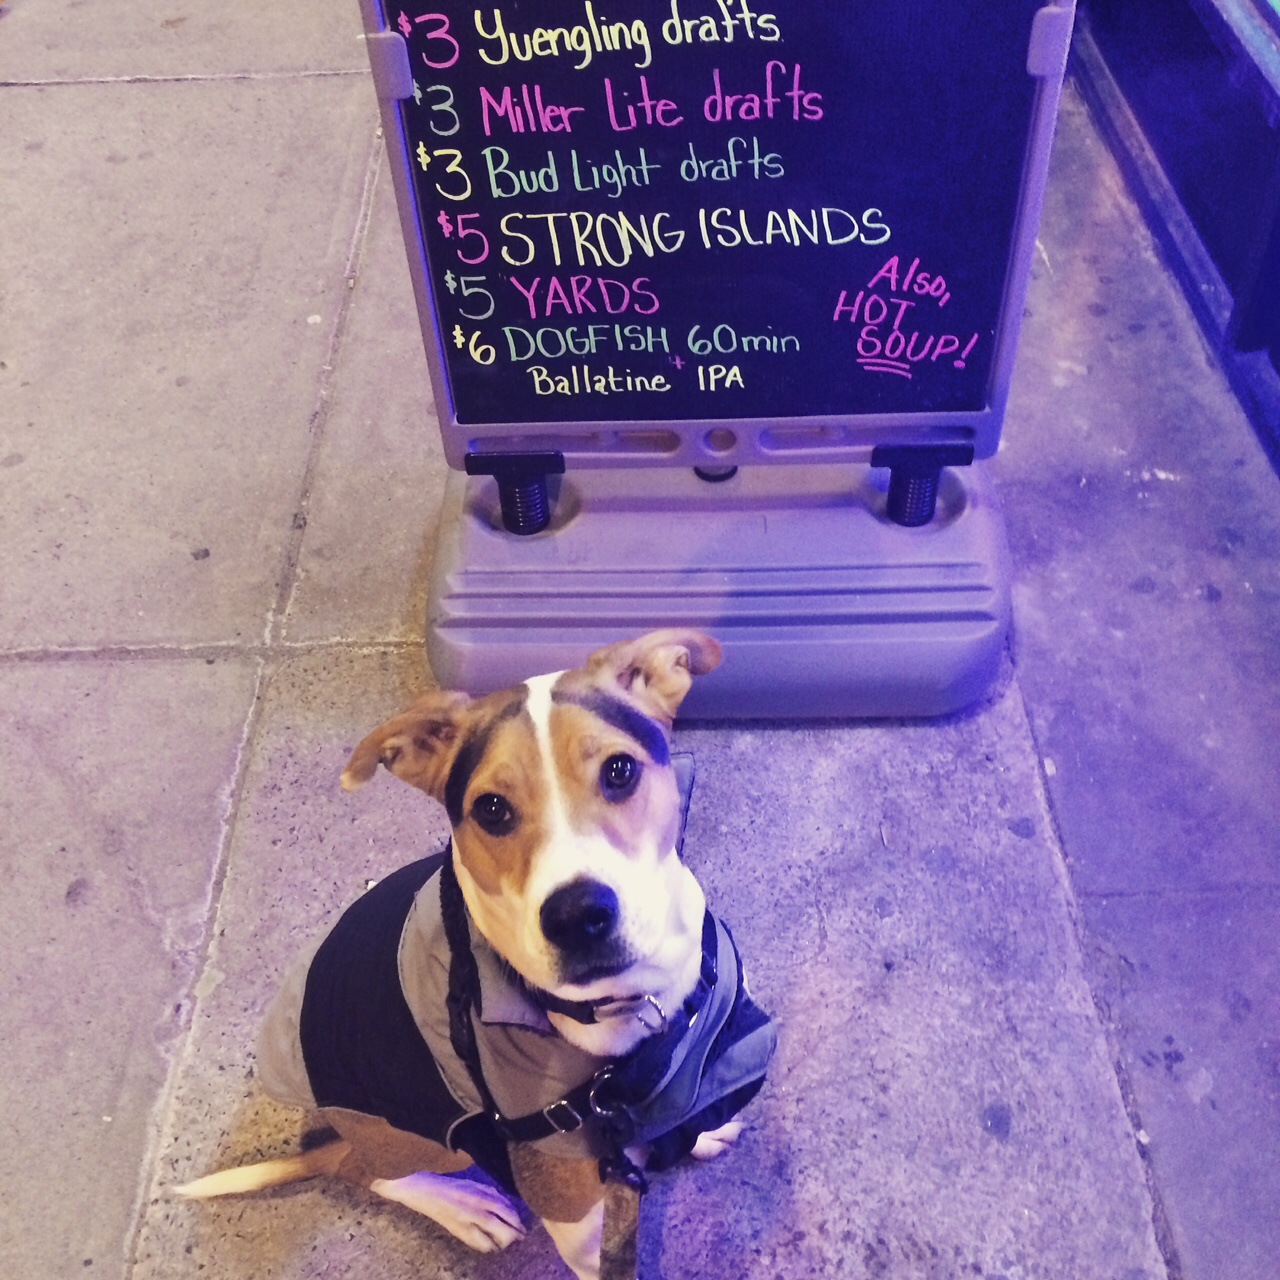 $3 Yuengling drafts
$3 Miller Lite drafts
$3 Bud Light drafts
$5 STRONG ISLANDS
$5 YARDS
$6 DOGFISH 60min
+
Ballatine IPA
Also,
HOT
SOUP!